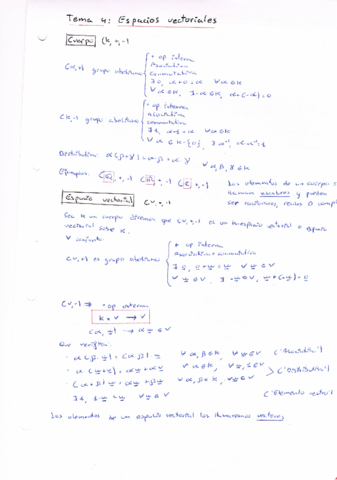 Tema 4: Espacios vectoriales
Cuerpo (K, +, ·)
(K,+) grupo abeliano
+ op interna
asociativa
conmutativa
∃ 0, α+0=α ∀α∈K
∀ α∈K, ∃-α∈K, α+(-α)=0
(K,·) grupo abeliano
· op interna
asociativa
conmutativa
∃ 1, α·1=α ∀α∈K
∀ α∈K-{0}, ∃ α⁻¹, α·α⁻¹=1
Distributiva: α(β+γ)=αβ+αγ ∀α,β,γ∈K
Ejemplos: (ℚ,+,·) (ℝ,+,·) (ℂ,+,·)
Los elementos de un cuerpo
llaman escalares y pueden
ser racionales, reales o
Espacio vectorial (V,+,·)
Sea K un cuerpo diremos que (V,+,·) es un espacio vectorial o espacio
vectorial sobre K.
V conjunto
(V,+) es grupo abeliano
+ op interna
Asociativa + conmutativa
(V,·) ⇒ · op externa
K × V → V
(α, v) → α v ∈ V
Que verifica:
· α(β·v)=(αβ)·v ∀ α,β∈K, ∀v∈V
∀ α,β∈K, ∀v∈V ("Distributiva")
∃ 1, 1·v=v ∀ v∈V ("Elemento neutro")
Los elementos de un espacio vectorial los llamaremos vectores.